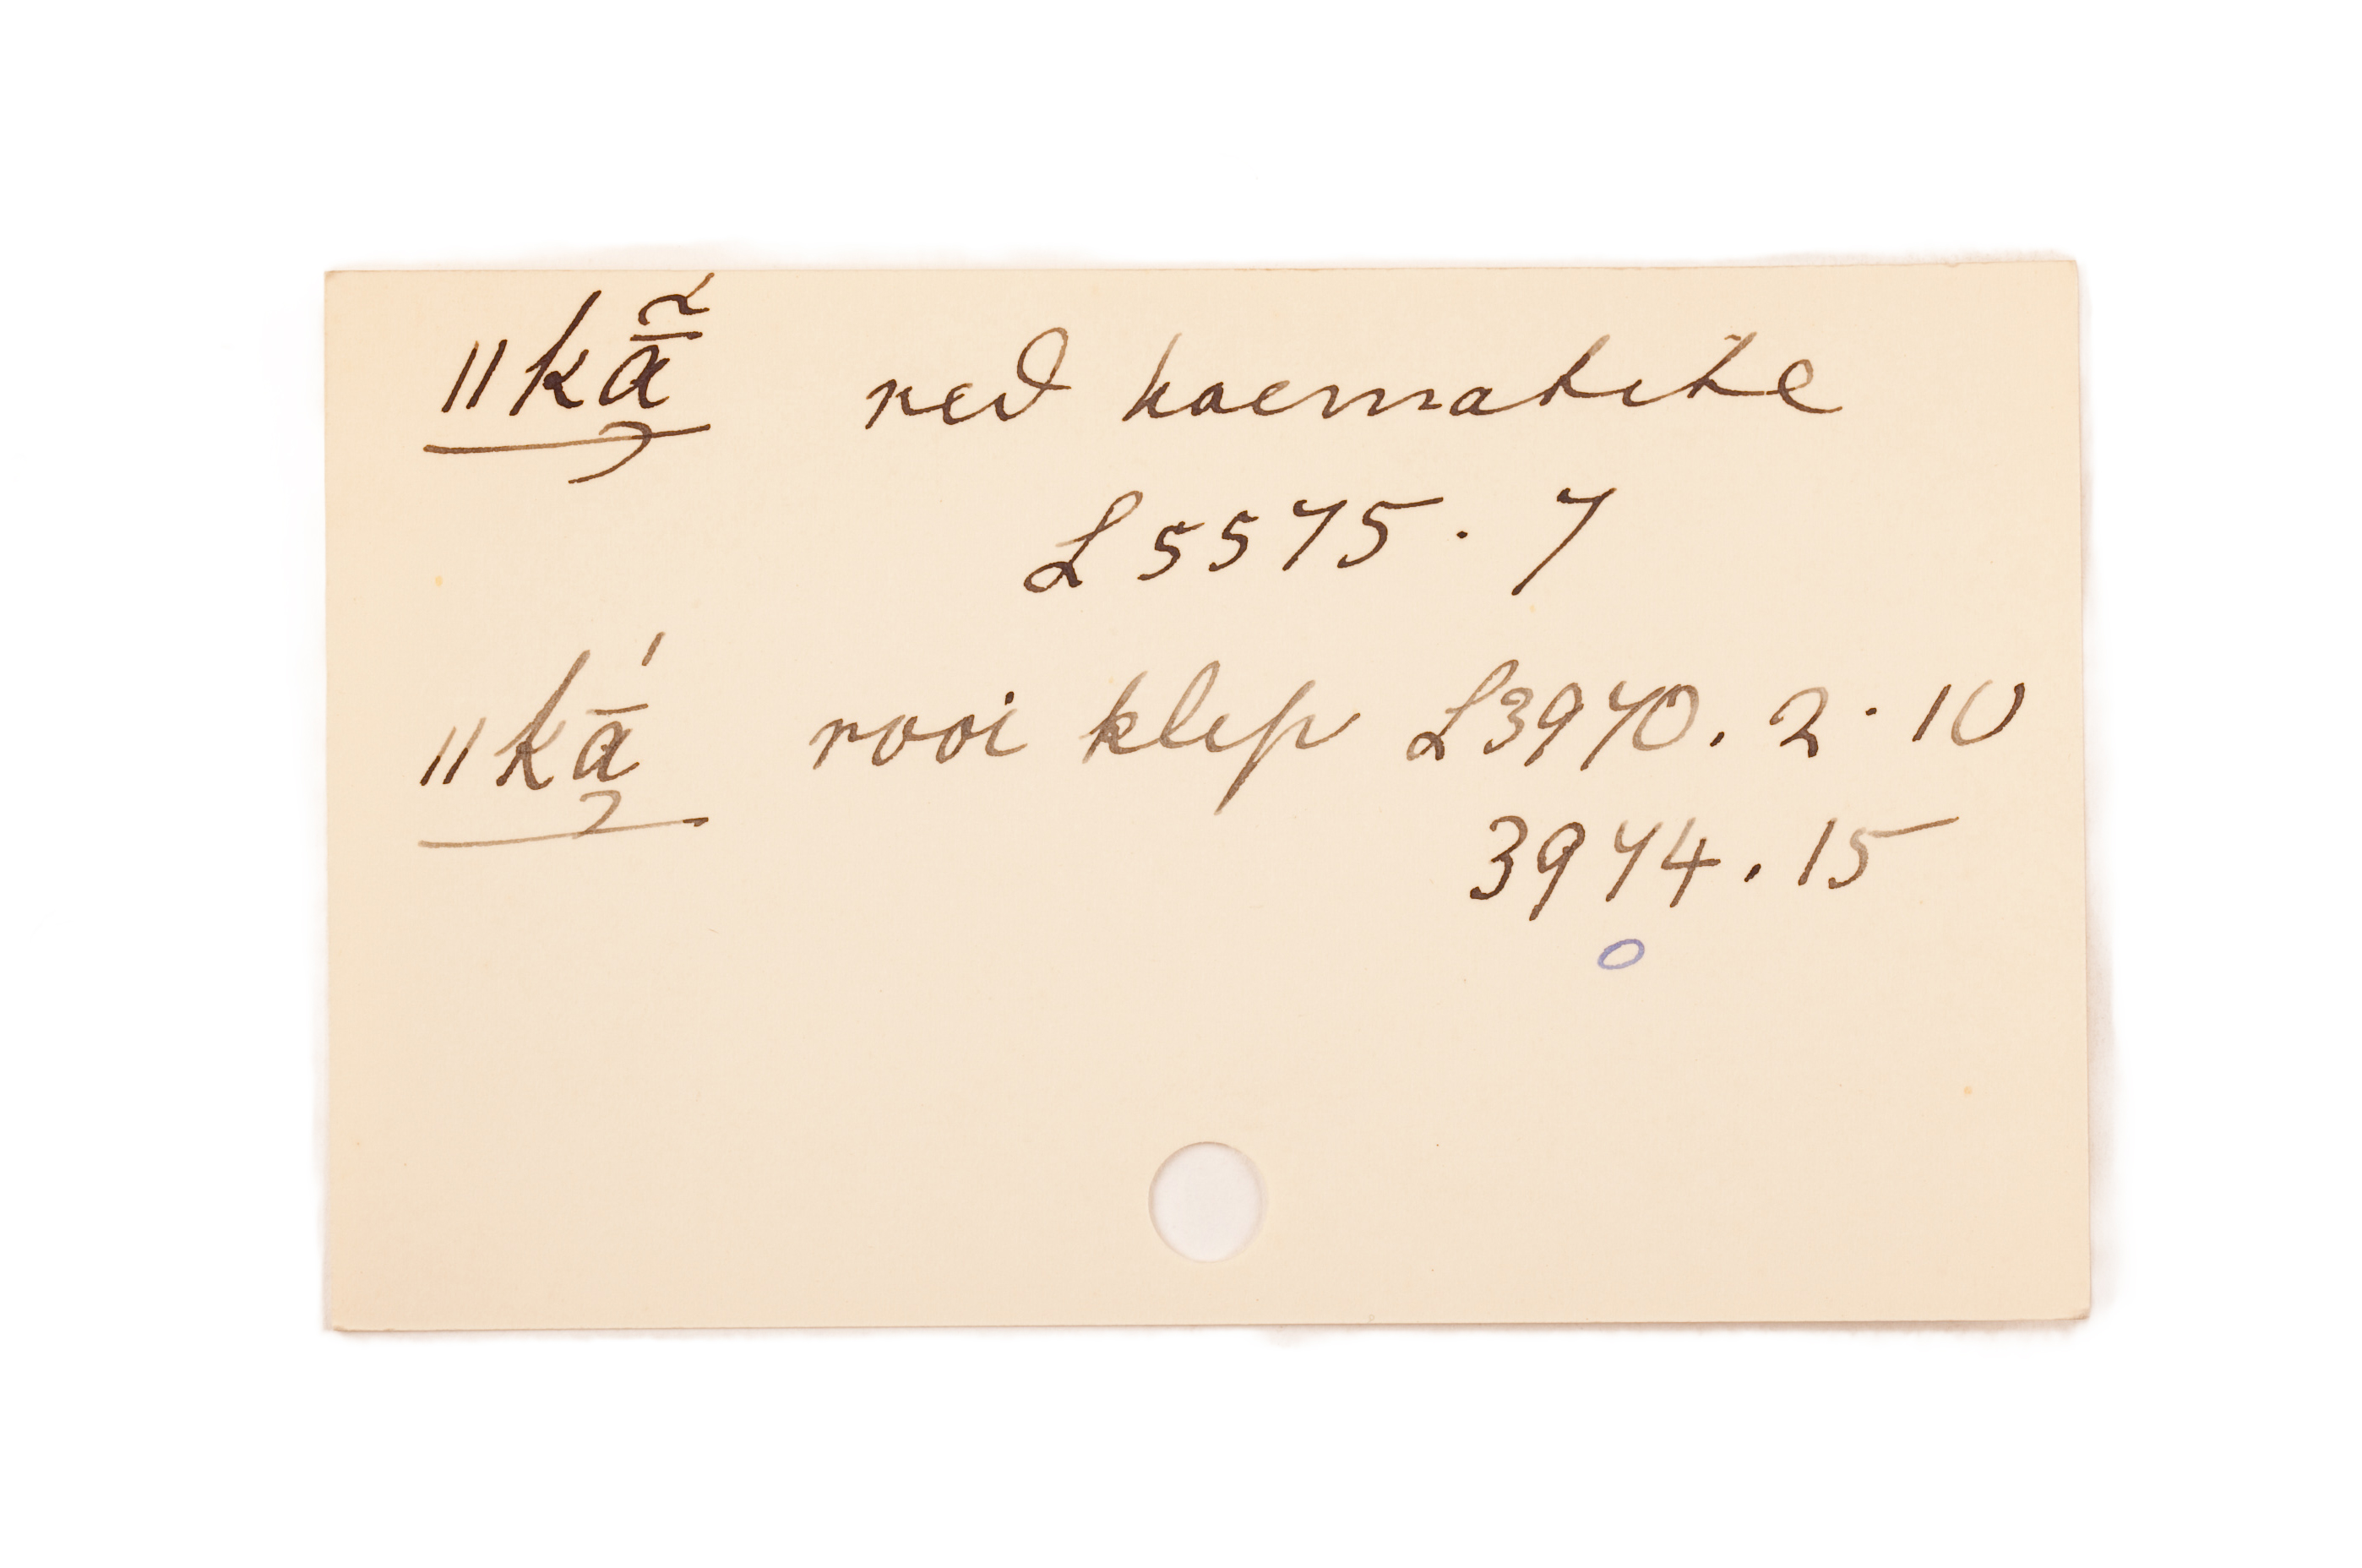 ǁkā̰́ red haematite
L 5575. 7
ǁkā́ rooi klip L3970. 2. 10
3974. 15
o